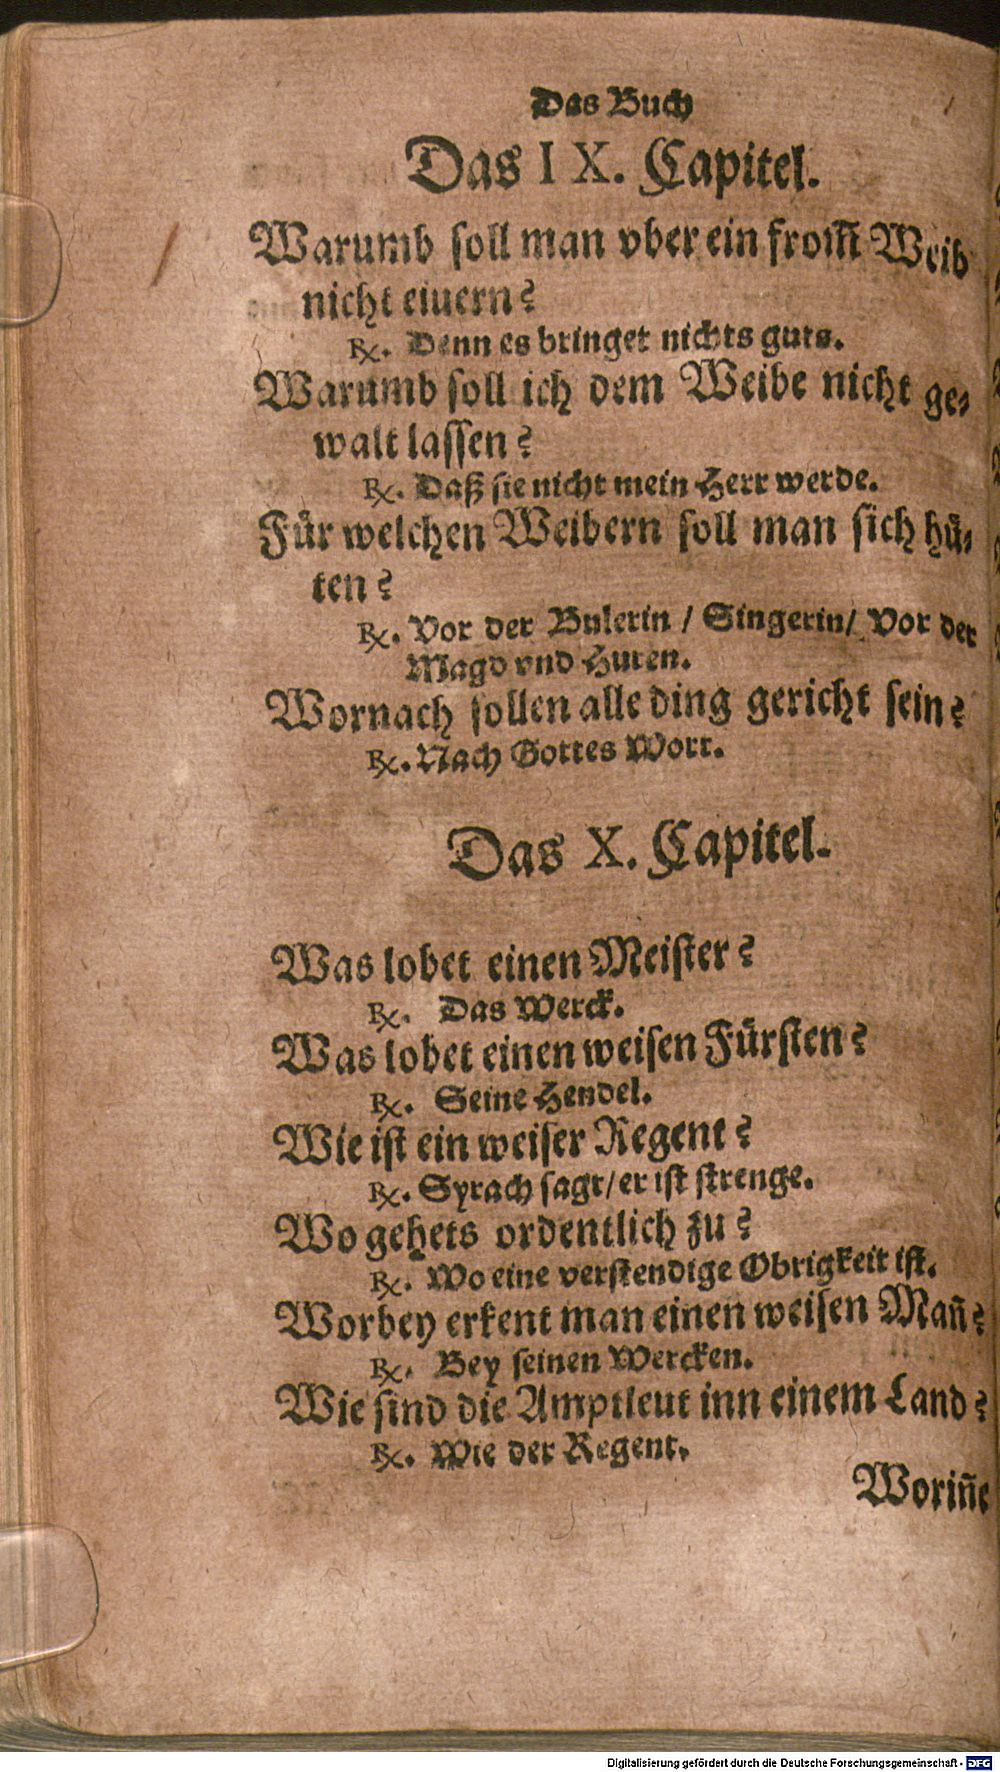 Das Buch
Das IX. Capitel.
Warumb soll man vber ein from̃ Weib
nicht eiuern?
℞. Denn es bringet nichts guts.
Warumb soll ich dem Weibe nicht ge⸗
walt lassen?
℞. Daß sie nicht mein Herr werde.
Für welchen Weibern soll man sich hü⸗
ten?
℞. Vor der Bulerin / Singerin / Vor der
Magd vnd Huren.
Wornach sollen alle ding gericht sein?
℞. Nach Gottes Wort.
Das X. Capitel.
Was lobet einen Meister?
℞. Das Werck.
Was lobet einen weisen Fürsten?
℞. Seine Hendel.
Wie ist ein weiser Regent?
℞. Syrach sagt / er ist strenge.
Wo gehets ordentlich zu?
℞. Wo eine verstendige Obrigkeit ist.
Worbey erkent man einen weisen Mañ?
℞. Bey seinen Wercken.
Wie sind die Amptleut inn einem Land?
℞. Wie der Regent.
Woriñe
Digitalisierung gefördert durch die Deutsche Forschungsgemeinschaft - DFG